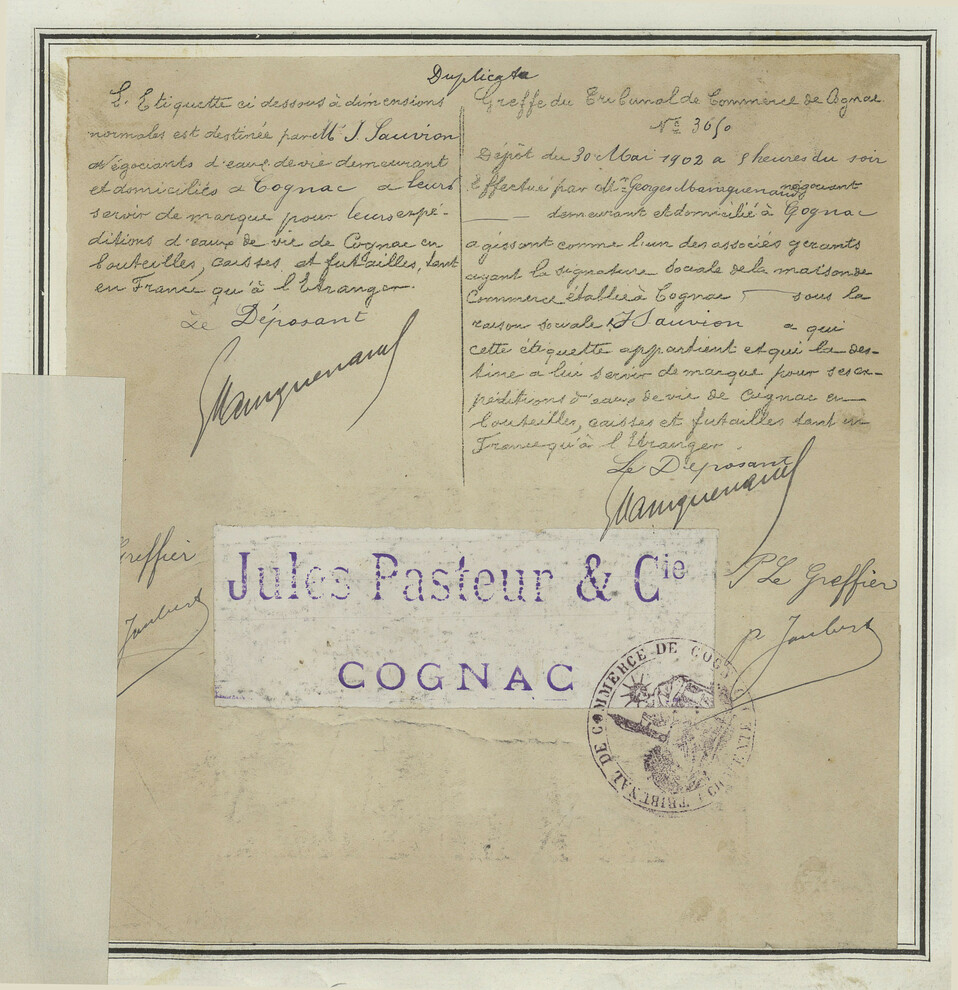 Duplicata
L'Etiquette ci dessous à dimensions
normales est destinée par Mr J. Sauvion
négociants d'eaux de vie demeurant
et domiciliés a Cognac a leurs
servir de marque pour leurs expé-
ditions d'eaux de vie de Cognac en
bouteilles, caisses et futailles, tant
en France qu'à l'Etranger.
Le Déposant
Greffe du Tribunal de Commerce de Cognac
No 3650
Dépôt du 30 Mai 1902 a heures du soir
effectué par Mr Georges négociant
demeurant et domicilié à Cognac
agissant comme l'un des associés gerants
ayant la signature sociale de la maison de
Commerce établie à Cognac sous la
raison sociale J Sauvion a qui
cette étiquette appartient et qui la des-
tine a lui servir de marque pour ses ex-
péditions d'eaux de vie de Cognac en
bouteilles, caisses et futailles tant en
France qu'à l'Etranger
Le Déposant
Greffier
Joubert
Jules Pasteur & Cie
COGNAC
P Le Greffier
P. Joubert
TRIBUNAL DE COMMERCE DE COGNAC